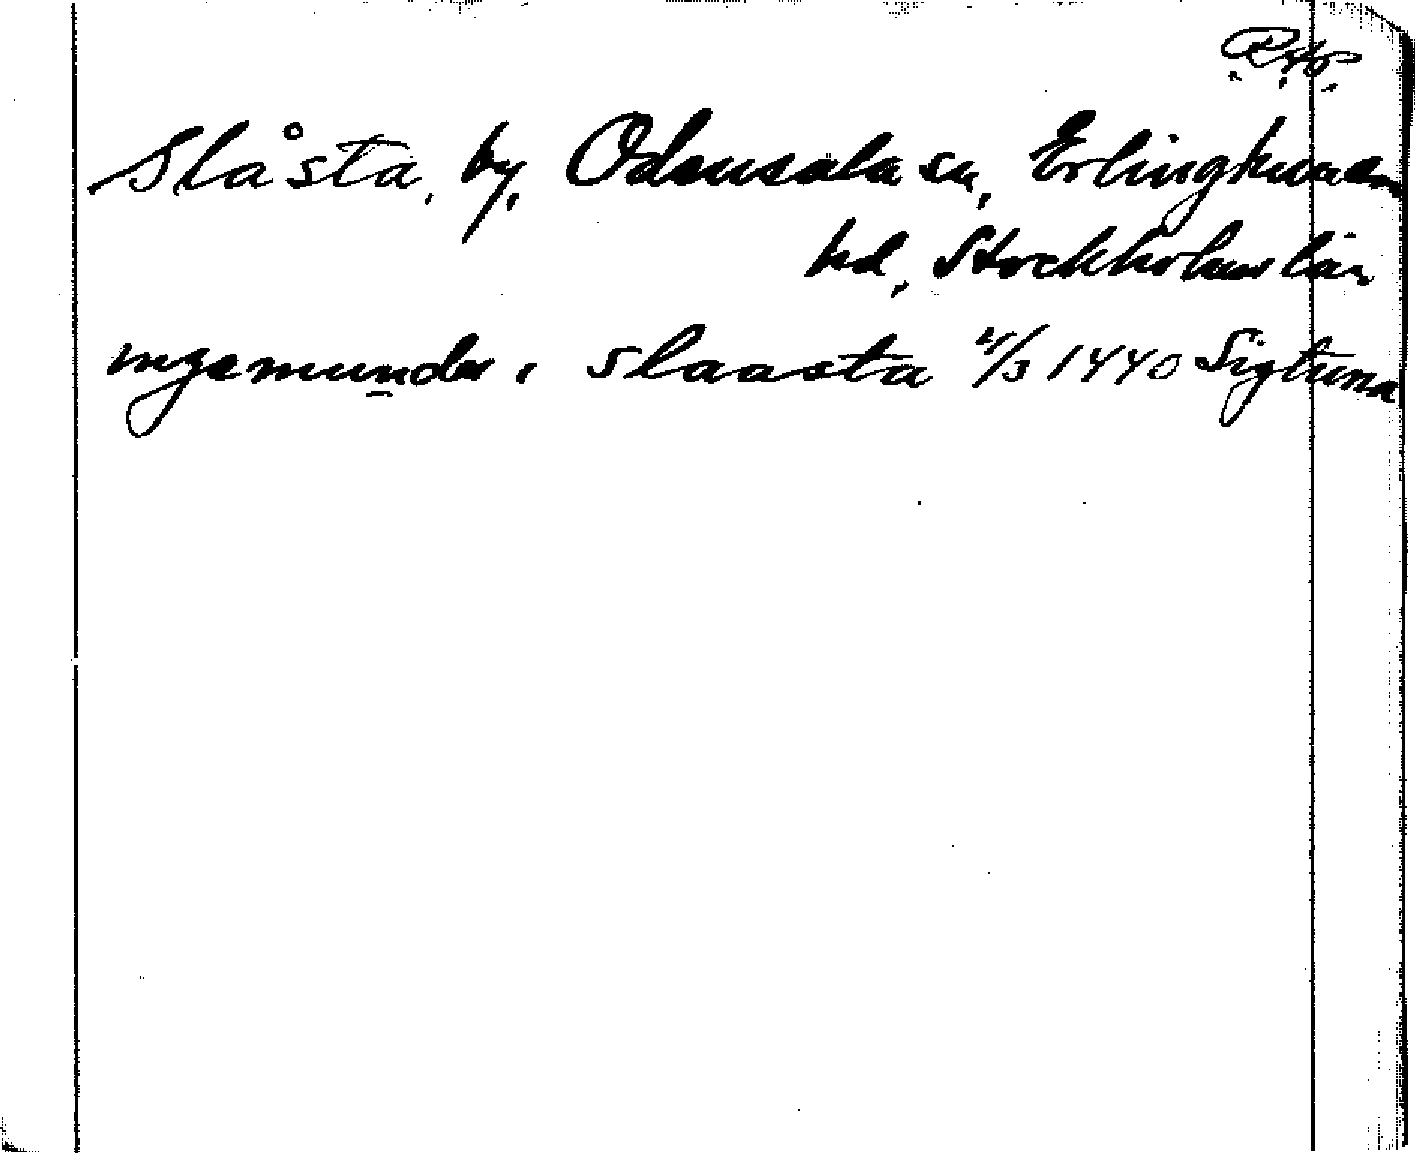 Slåsta, by, Odensala sn, Erlinghundra
hd, Stockholms län
ingemunde i slaasta 1440 Sigtuna